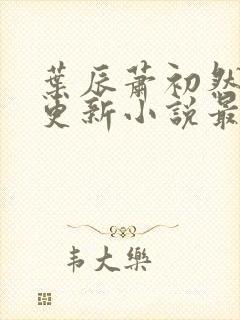 葉辰蕭初然
更新小說最
韦大樂